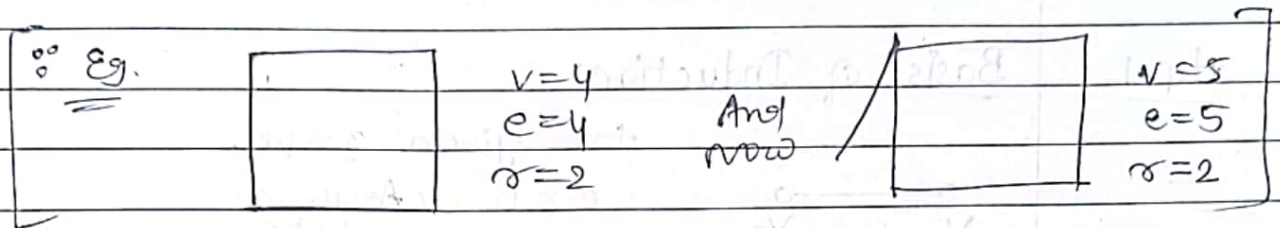 ∵ Eg.
v=4
e=4
r=2
And
now
v=5
e=5
r=2